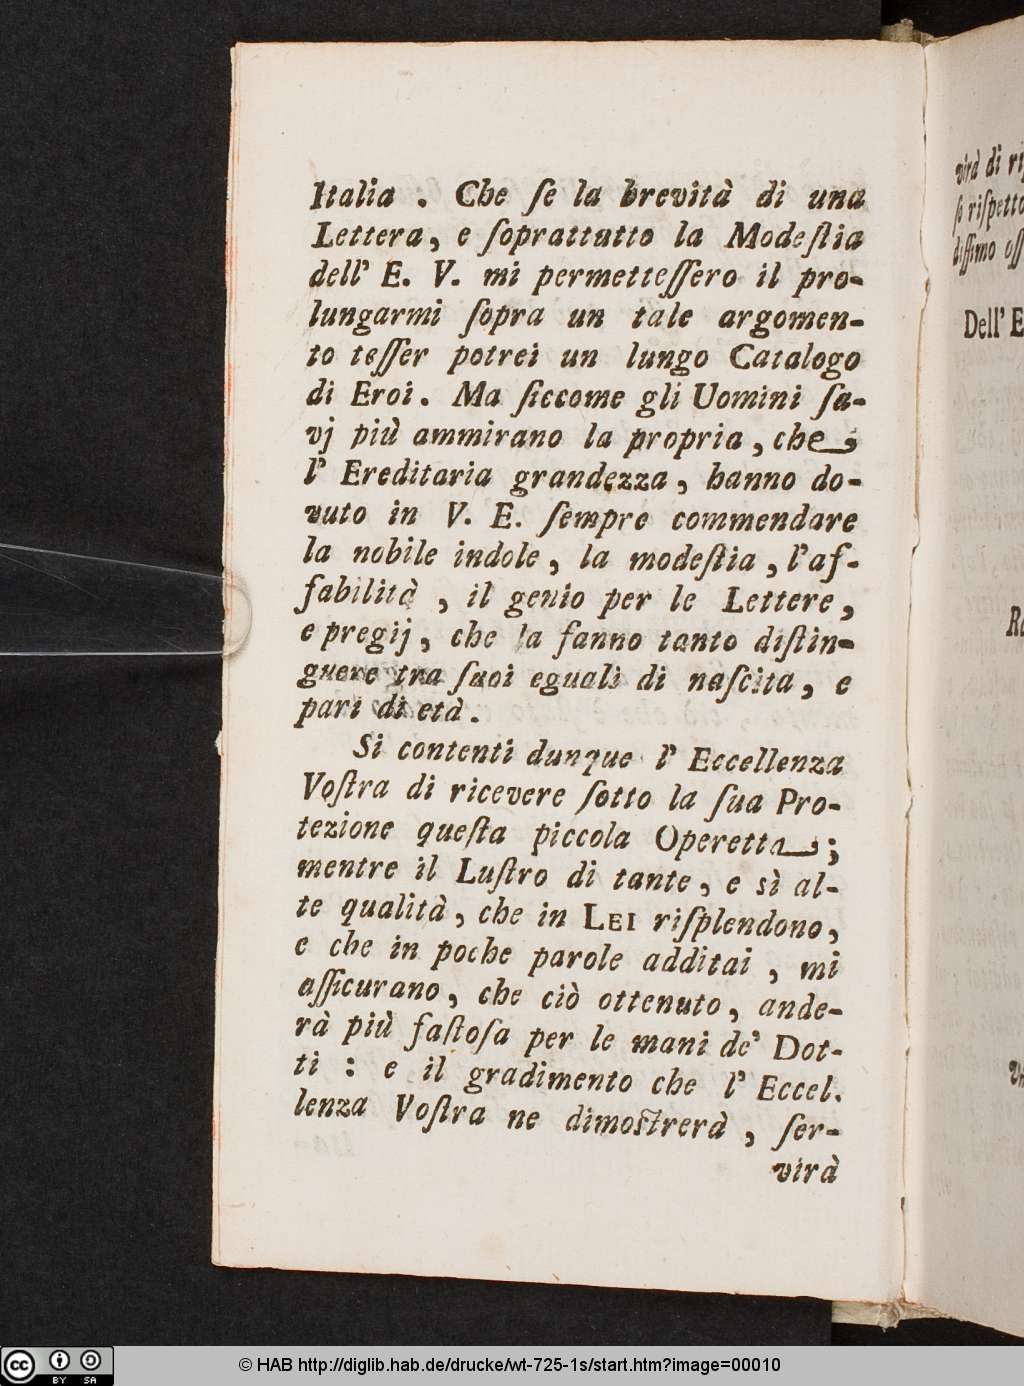 Italia . Che ſe la brevità di una
Lettera, e ſoprattutto la Modeſtia
dell' E. V. mi permetteſſero il pro-
lungarmi ſopra un tale argomen-
to teſſer potrei un lungo Catalogo
di Eroi. Ma ſiccome gli Uomini ſa-
vj più ammirano la propria, che
l' Ereditaria grandezza, hanno do-
vuto in V. E. ſempre commendare
la nobile indole, la modeſtia, l'af-
fabilità , il genio per le Lettere,
e pregij, che la fanno tanto diſtin-
guere tra ſuoi eguali di naſcita, e
pari di età.
Si contenti dunque l' Eccellenza
Voſtra di ricevere ſotto la ſua Pro-
tezione queſta piccola Operetta;
mentre il Luſtro di tante, e sì al-
te qualità, che in LEI riſplendono,
e che in poche parole additai , mi
aſſicurano, che ciò ottenuto, ande-
rà più faſtoſa per le mani de' Dot-
ti : e il gradimento che l' Eccel-
lenza Voſtra ne dimoſtrerà , ſer-
virà
virà di
ſo riſpetto
diſſimo oſſ
Dell' E
© HAB http://diglib.hab.de/drucke/wt-725-1s/start.htm?image=00010
cc BY SA